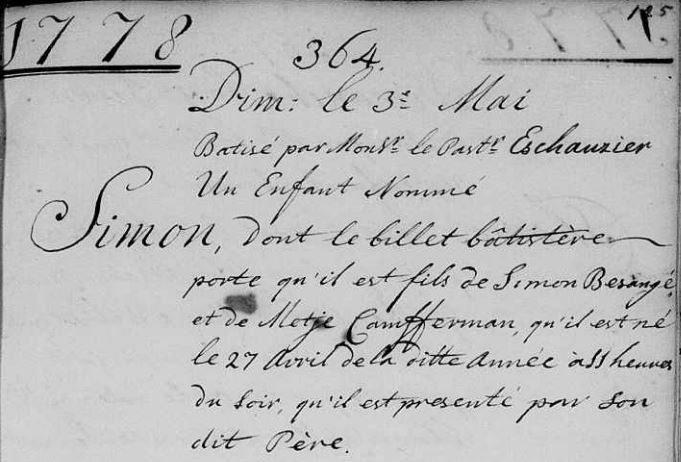 125
1778
364.
Dim: le 3e Mai
Batisé par Monsr le Pastr Eschauzier
Un Enfant Nommé
Simon, dont le billet bâtistère
porte qu'il est fils de Simon Besangé,
et de Metje Campfferman, qu'il est né
le 27 Avril de la ditte Année à 11 heures
du Soir, qu'il est presenté par Son
dit Père.